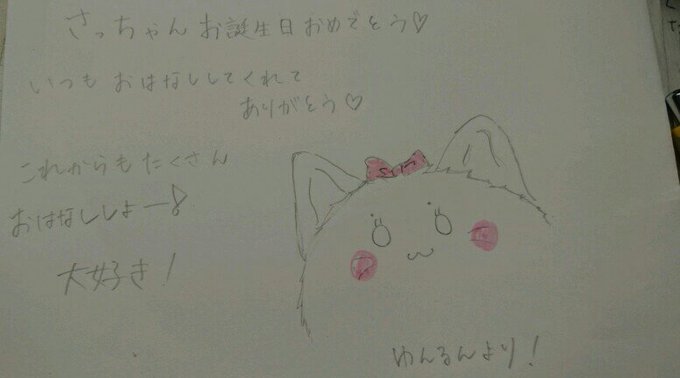 さっちゃん お誕生日おめでとう♡
いつも おはなししてくれて
ありがとう♡
これからも たくさん
おはなししよー♪
大好き！
ゆんるんより！